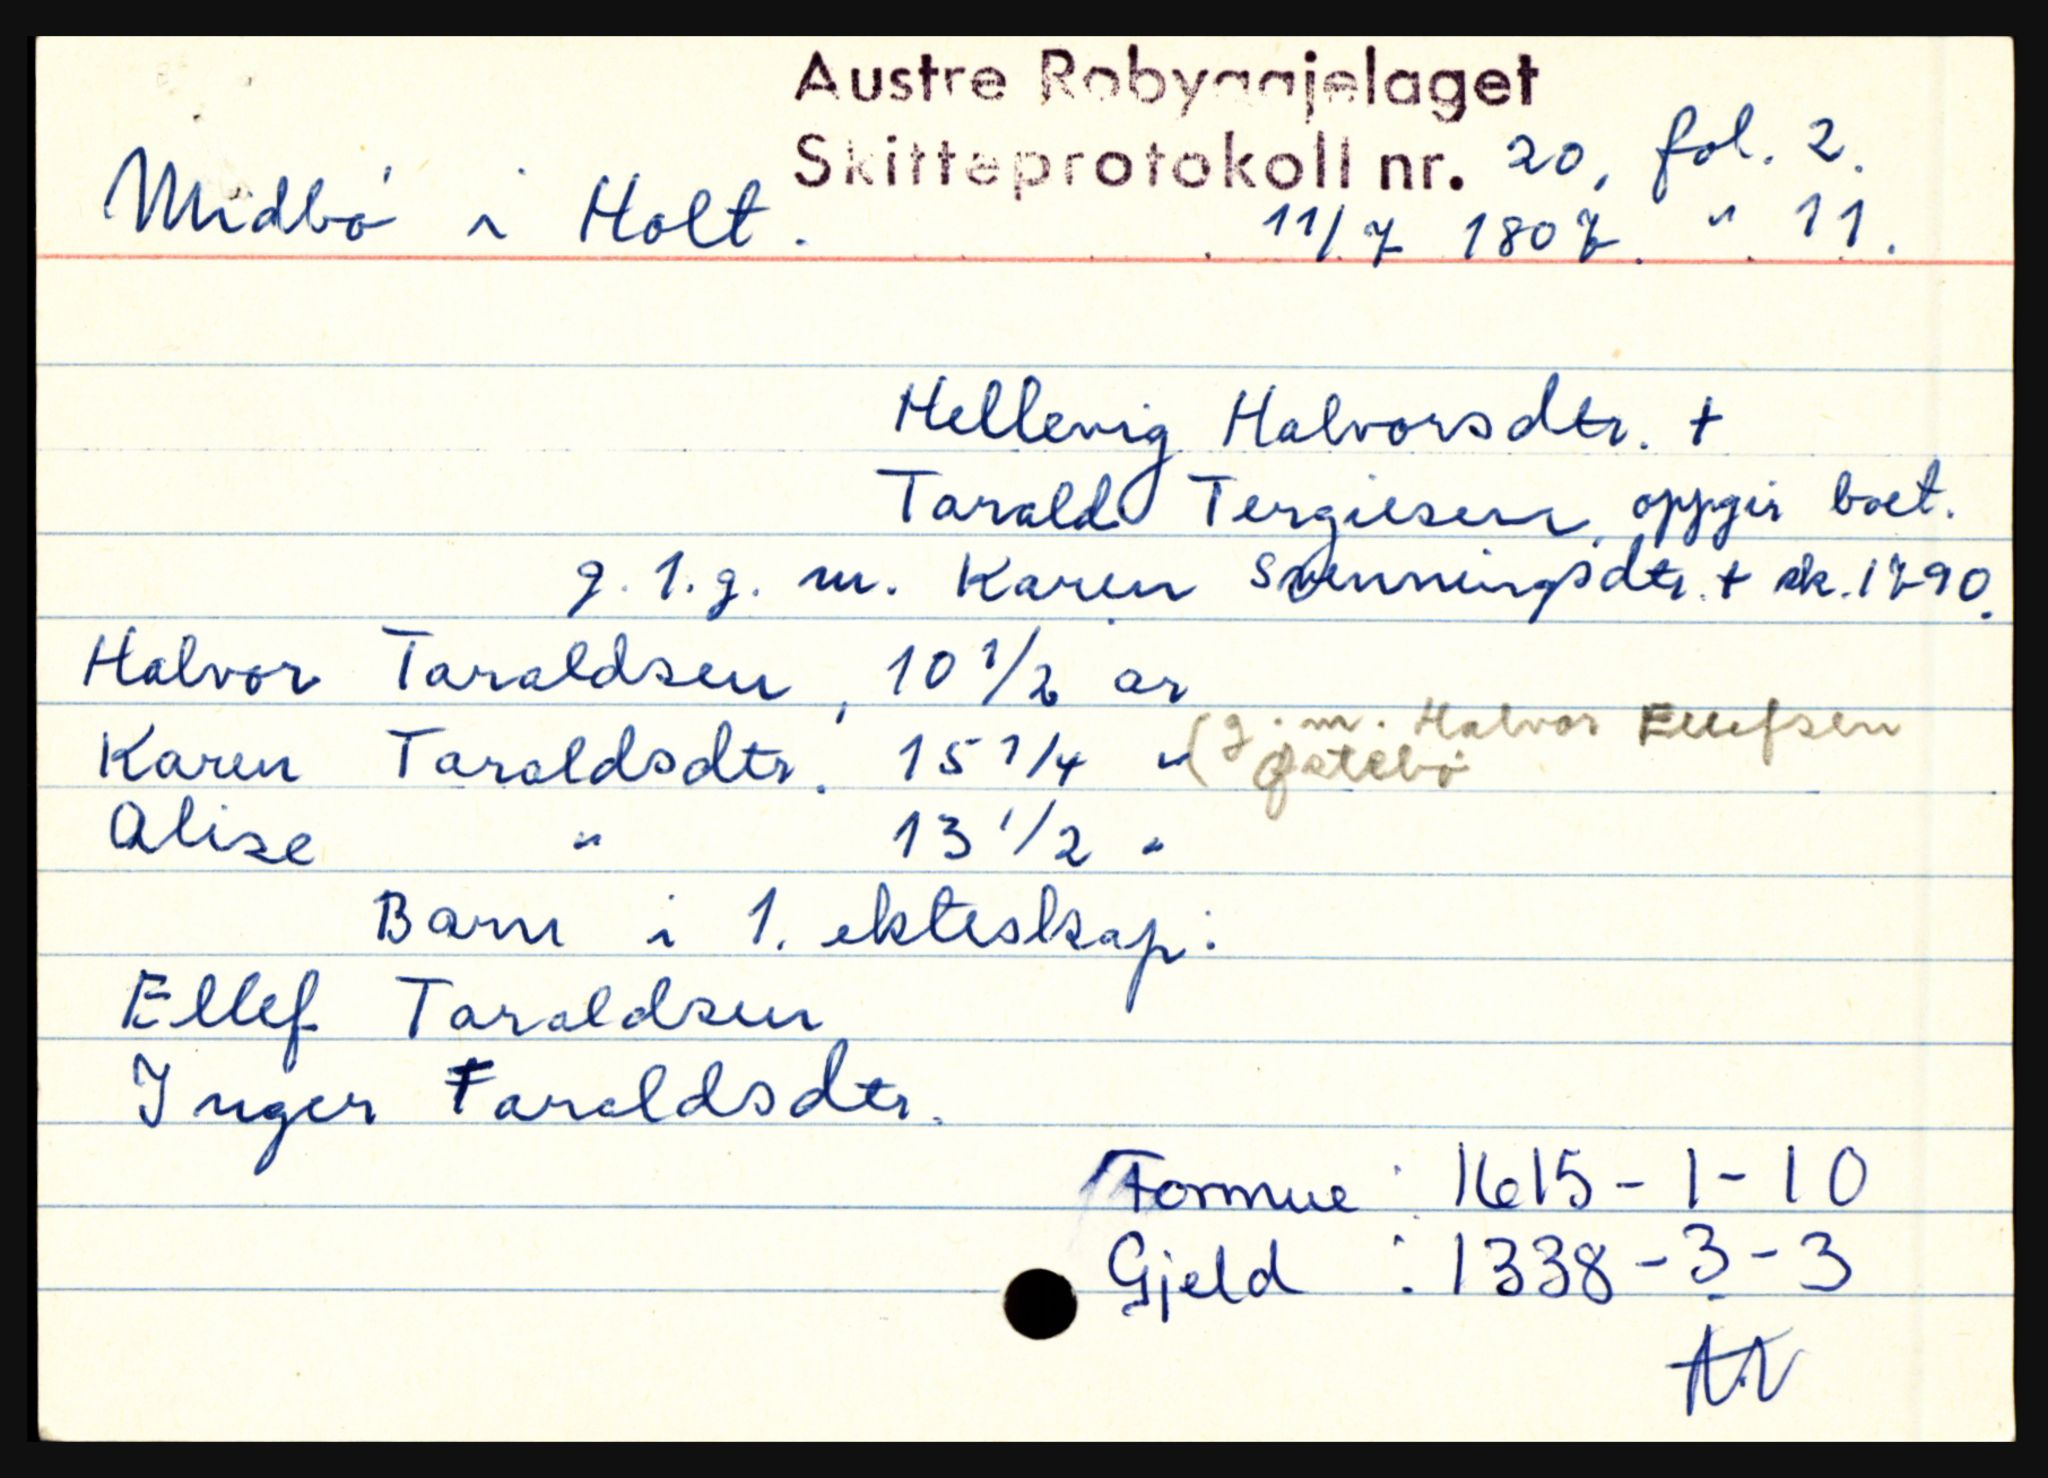 Austre Robyggjelaget
Skifteprotokoll nr. 20, fol. 2.
Midbø i Holt. 11/7 1807. " 11.
Hellevig Halvorsdtr. +
Tarald Tergiesen, oppgir boet.
g. 1. g. m. Karen Svenningsdtr. + sk. 1790.
Halvor Taraldsen, 10 1/2 år
Karen Taraldsdtr. 15 1/4 " (g. m. Halvor Ellefsen
Østebø
Alise " 13 1/2 "
Barn i 1. ekteskap:
Ellef Taraldsen
Inger Taraldsdtr.
Formue : 1615 - 1 - 10
Gjeld : 1338 - 3 - 3